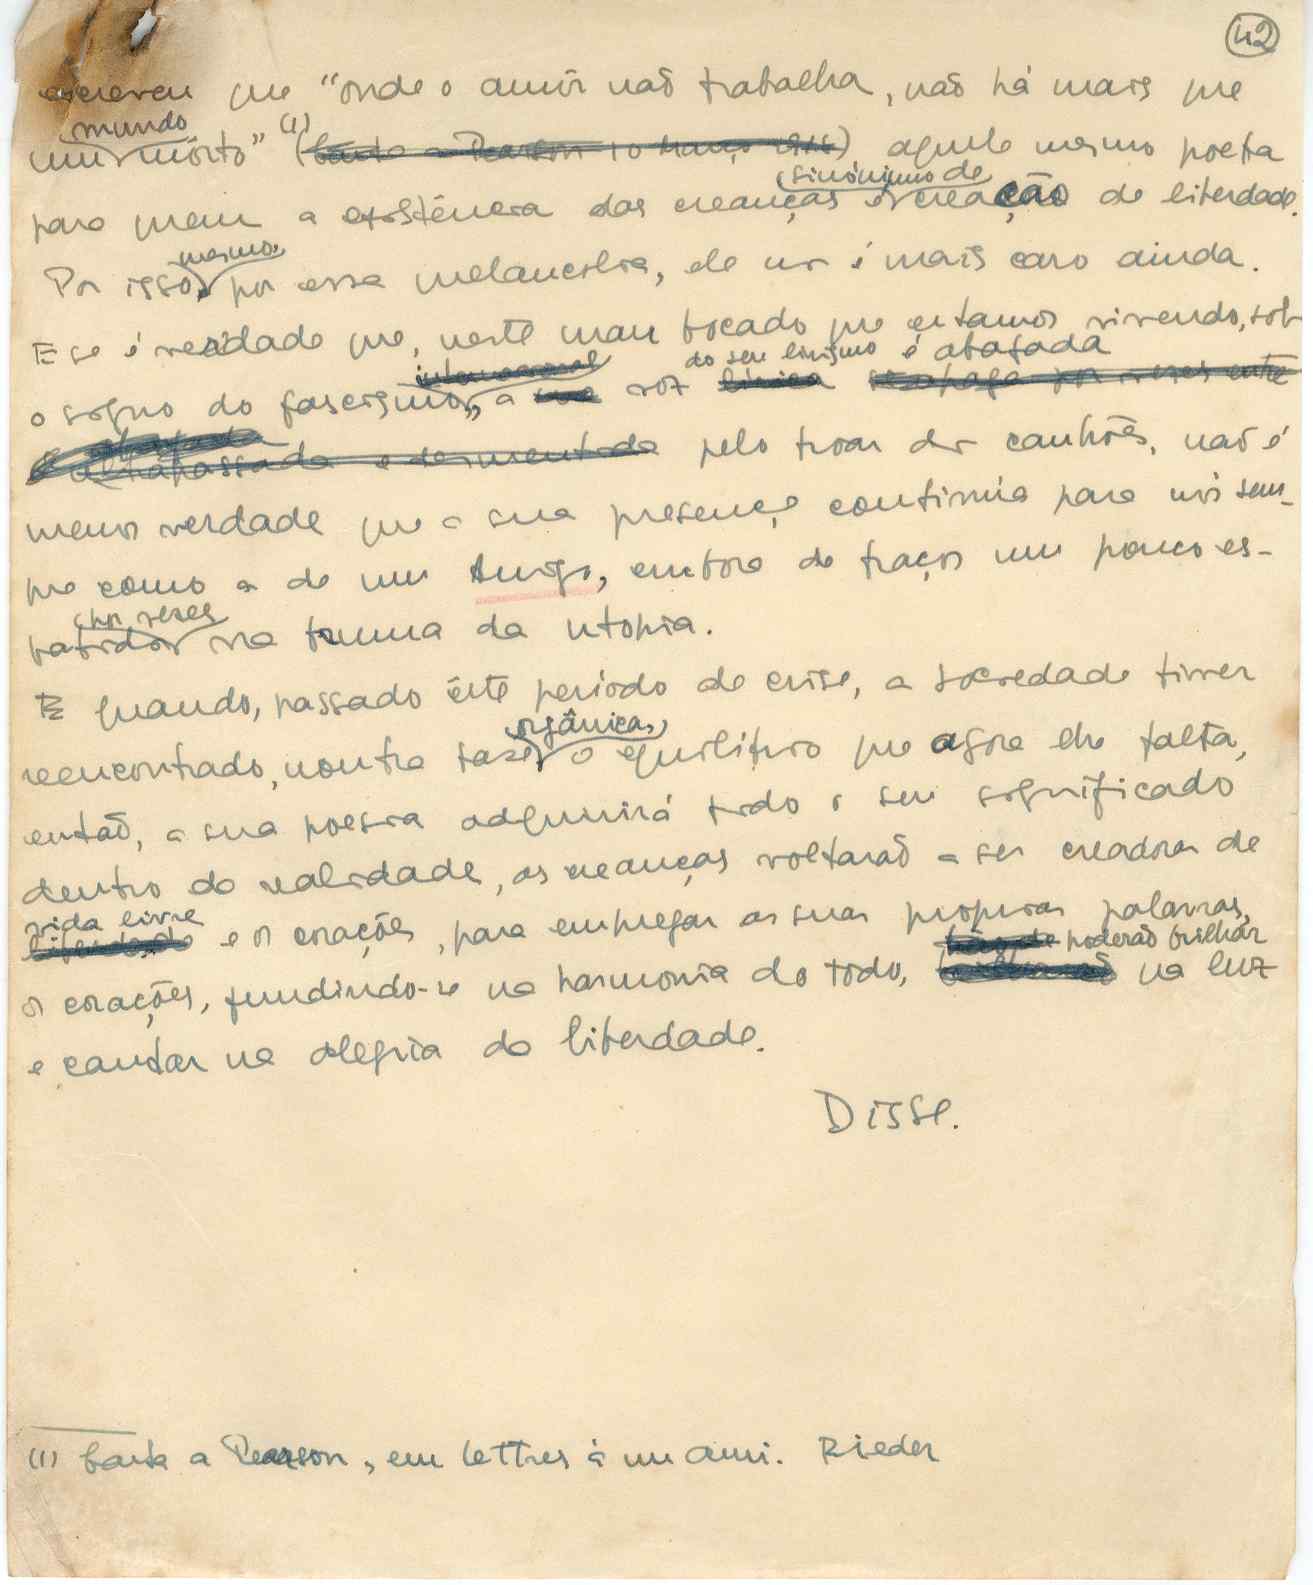 42
escreveu que "onde o amôr não trabalha, não há mais que
um mundo môrto" (1) (Carta a Pearson 10 março 1916) aquele mesmo poeta
para quem a existência das creanças é sinónimo de creação de liberdade.
Por isso mesmo, por essa melancolia, ele nos é mais caro ainda.
E se é verdade que, neste mau bocado que estamos vivendo, sob
o signo do fascismo internacional, a sua voz lírica do seu lirismo é abafada se apaga por vezes entre
é abafada ultrapassada e desmentida pelo troar dos canhões, não é
menos verdade que a sua presença continúa para nós sem-
pre como a de um Amigo, embora de traços um pouco es-
batidos por vezes na bruma da utopia.
E quando, passado êste período de crise, a sociedade tiver
reencontrado, noutra fase orgânica, o equilíbrio que agora lhe falta,
então, a sua poesia adquirirá todo o seu significado
dentro da realidade, as creanças voltarão a ser creadoras de
liberdade vida livre e os corações, para empregar as suas proprias palavras,
os corações, fundindo-se na harmonia do todo, brilharão poderão brilhar na luz
e cantar na alegria da liberdade.
Disse.
(1) Carta a Pearson, em Lettres à un ami. Rieder